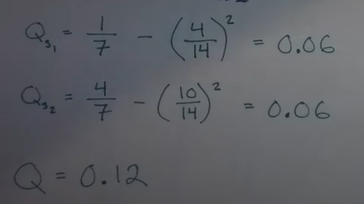 Q_{s_1} = \frac{1}{7} - \left(\frac{4}{14}\right)^2 = 0.06
Q_{s_2} = \frac{4}{7} - \left(\frac{10}{14}\right)^2 = 0.06
Q = 0.12